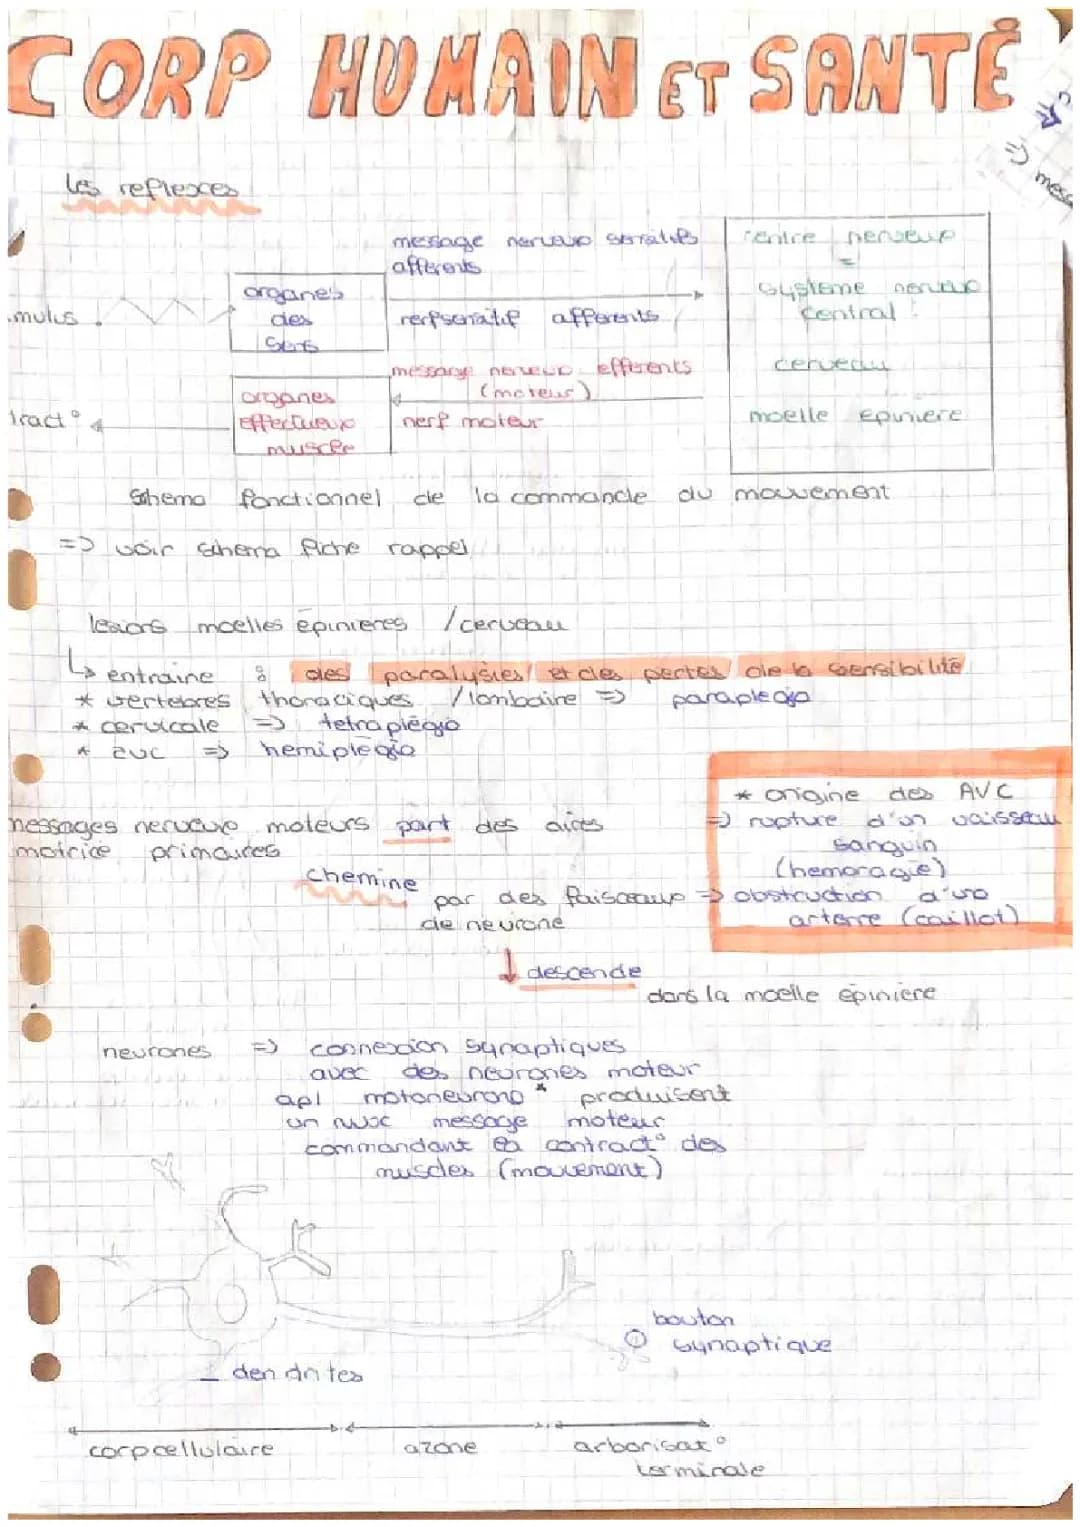 CORP HUMAIN ET SANTÉ
=> mess
les reflexes
message nerveux sensitifs
afferents
centre nerveux
=
systeme nerveux
central :
cerveau
moelle Epiniere
.mulus.
organes
des
sens
nerf sensitif afferents
message nerveux efferents
(moteur)
organes
effectueux
muscle
nerf moteur
tract°
Shema fonctionnel de la commande du mouvement
=> voir shema fiche rappel
lesions moelles épinieres /cerveau
entraine : des paralysies et des pertes de la sensibilité
* vertebres thoraciques /lombaire => paraplegia
* cervicale => tetraplégia
* avc => hemiplegia
* origine des AVC
=> rupture d'un vaisseau
sanguin
(hemoragie)
=> obstruction d'un
arterre (caillot)
messages nerveux moteurs part des aires
motrice primaires
chemine
par des faisceaux
de neurone
descende
dans la moelle épinière
neurones => connexion synaptiques
avec des neurones moteur
apl motoneurone * produisent
un nvx message moteur
commandant la contract° des
muscles (mouvement)
bouton
synaptique
dendrites
corpcellulaire
azone
arborisat°
terminale